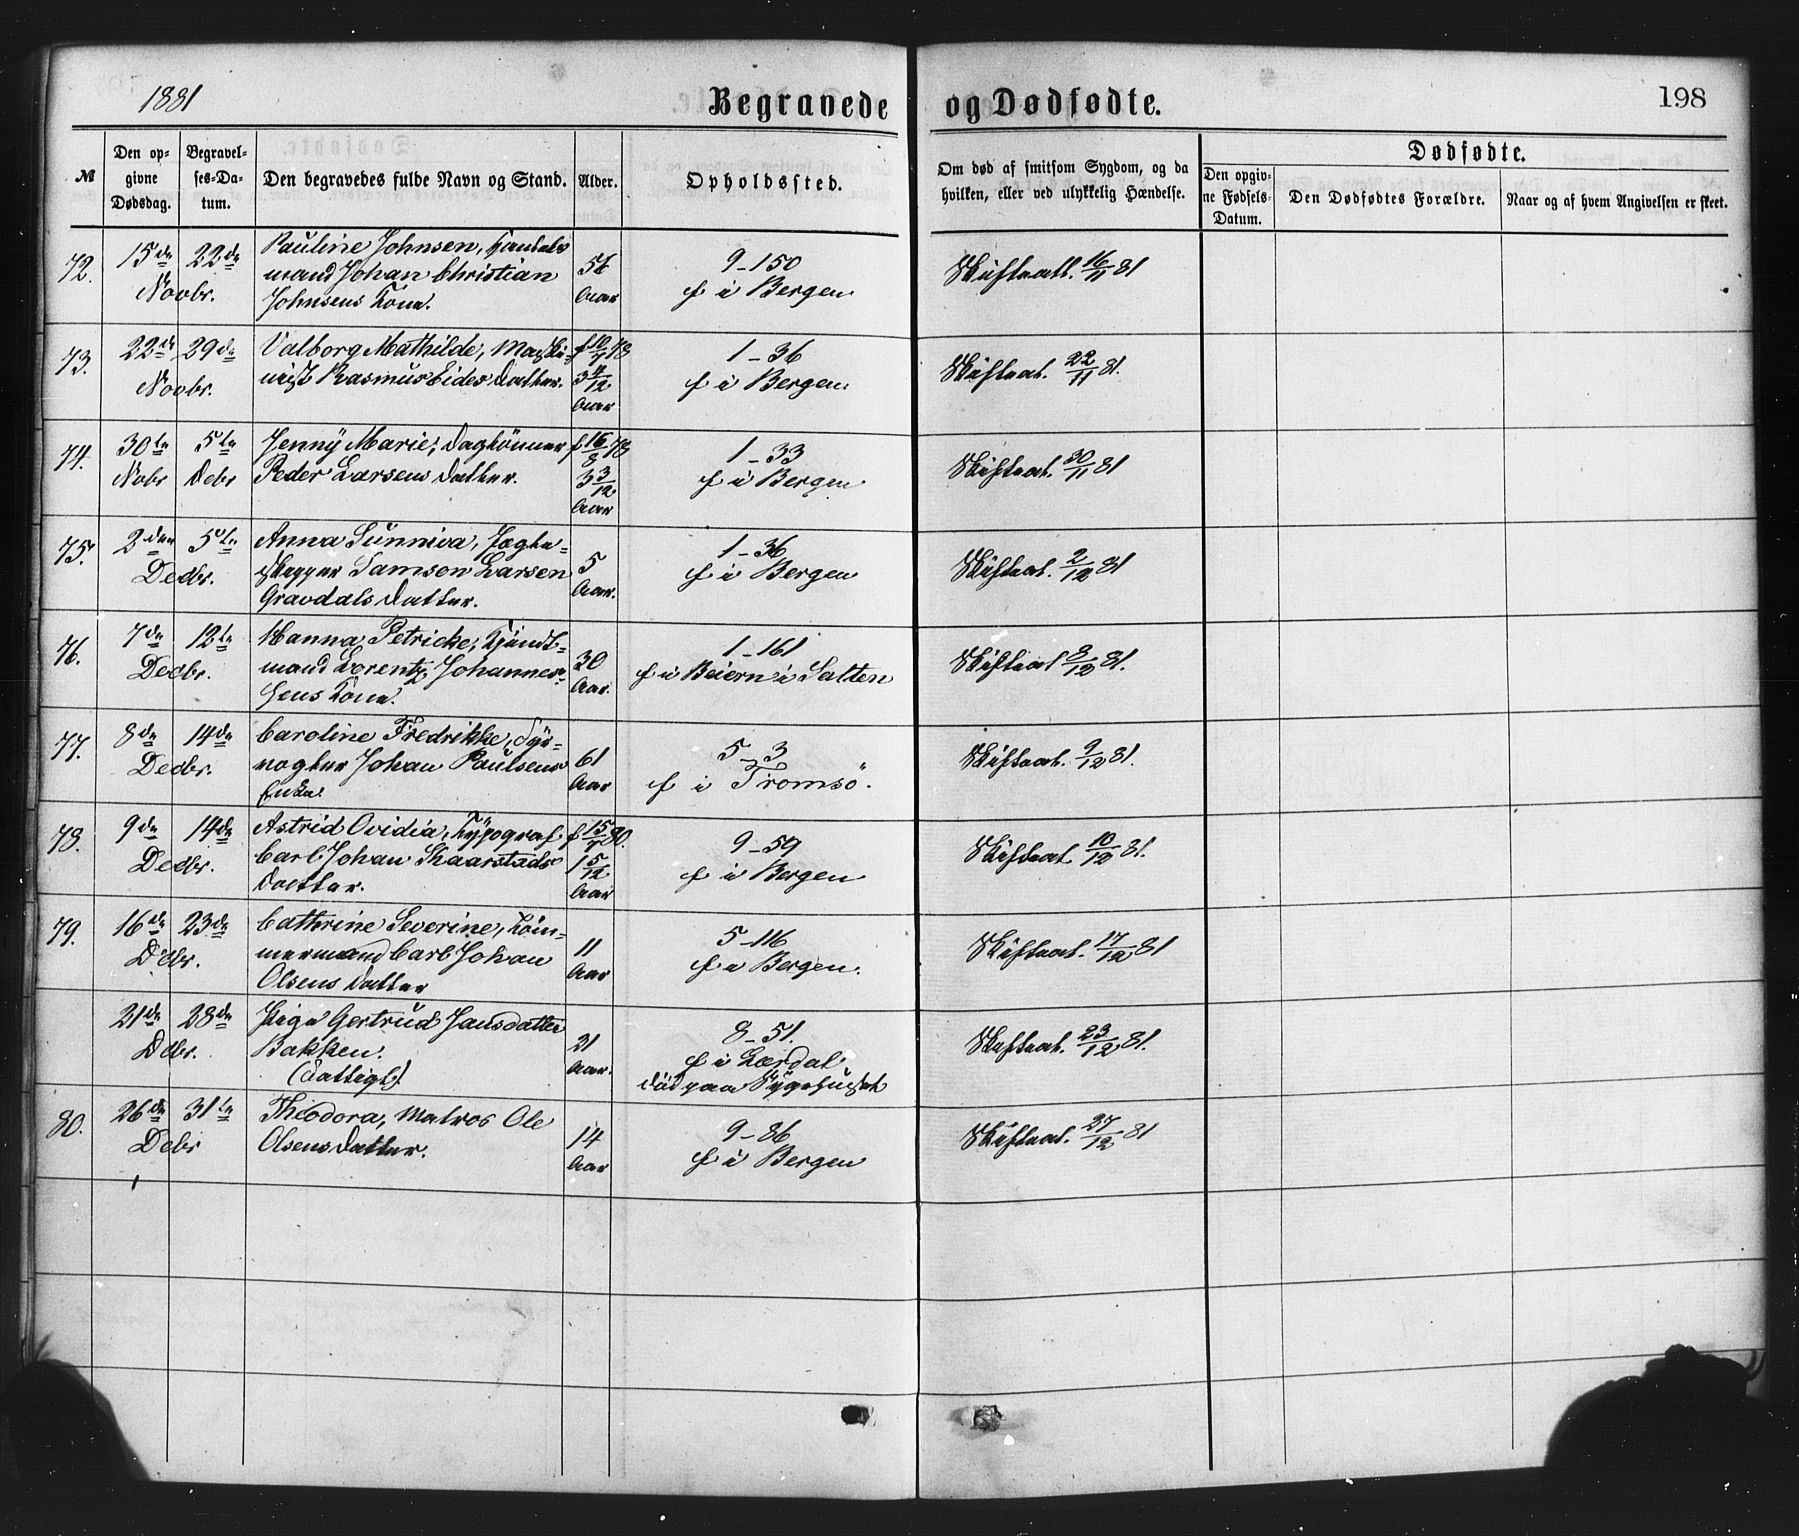 1881
Begravede og Dødfødte.
198
№
Den op-
givne
Dødsdag.
Begravel-
ses-Da-
tum.
Den begravedes fulde Navn og Stand.
Alder.
Opholdssted.
Om død af smitsom Sygdom, og da
hvilken, eller ved ulykkelig Hændelse.
Dødfødte.
Den opgiv-
ne Fødsels-
Datum.
Den Dødfødtes Forældre.
Naar og af hvem Angivelsen er skeet.
72.
15de 22de
Novbr.
Pauline Johnsen, Handels
mand Johan Christian
Johnsens Kone.
56
Aar
9-150
f i Bergen
Skifteatt. 16/11 81
73.
22de 29de
Novbr.
Valborg Mathilde, Maski
nist Rasmus Eides Datter.
f 10/7 78
3 4/12
Aar
1-36
f i Bergen
Skifteat. 22/11 81.
74.
30te 5te
Nobr Debr
Jenny Marie, Daglönner
Peder Larsens Datter.
f 16/8 78
3 3/12
Aar
1-33
f i Bergen
Skifteat. 30/11 81
75.
2den 5te
Decbr.
Anna Sunniva, Jagte-
skipper Samson Larsen
Gravdals Datter.
5
Aar.
1-36
f i Bergen
Skifteat. 2/12 81
76.
7de 12te
Decbr.
Hanna Petricke,
mand Lorentz Johannes-
sens Kone.
30
Aar.
1-161
f i Beiern i Salten
Skifteat 8/12 81.
77.
8de 14de
Decbr.
Caroline Fredrikke, Fyr-
vogter Johan Paulsens
Enke
61
Aar
5-3
f i Tromsö.
Skifteat. 9/12 81.
78.
9de 14de
Decbr.
Astrid Ovidia, Typograf
Carl Johan Skaarstads
Datter.
f 15/7 80.
1 5/12
Aar
9-59
f i Bergen
Skifteat 10/12 81.
79.
16de 23de
Dcbr.
Cathrine Severine, Töm-
mermand Carl Johan
Olsens Datter
11
Aar
5-116
f i Bergen.
Skifteat. 17/12 81
21de 28de
Dcbr.
Pige Gertrud Jansdatter
Bakken.
(Fattigl).
21
Aar.
8-51.
f i Lærdal
död paa Sygehuset
Skifteat. 23/12 81.
80.
26de 31te
Debr
Theodora, Matros Ole
Olsens Datter.
14
Aar
9-86
f i Bergen
Skifteat. 27/12 81